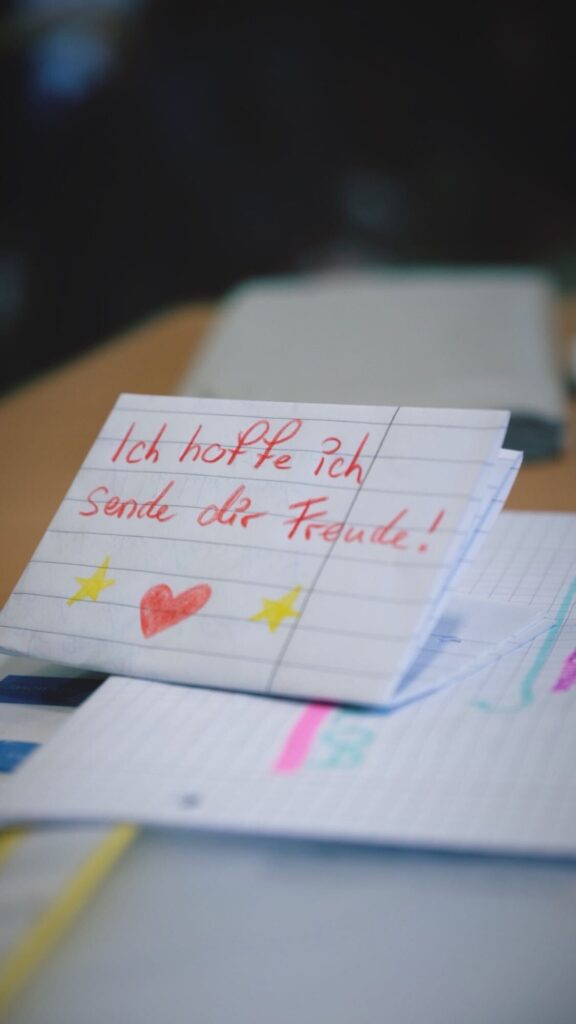 Ich hoffe ich
sende dir Freude!